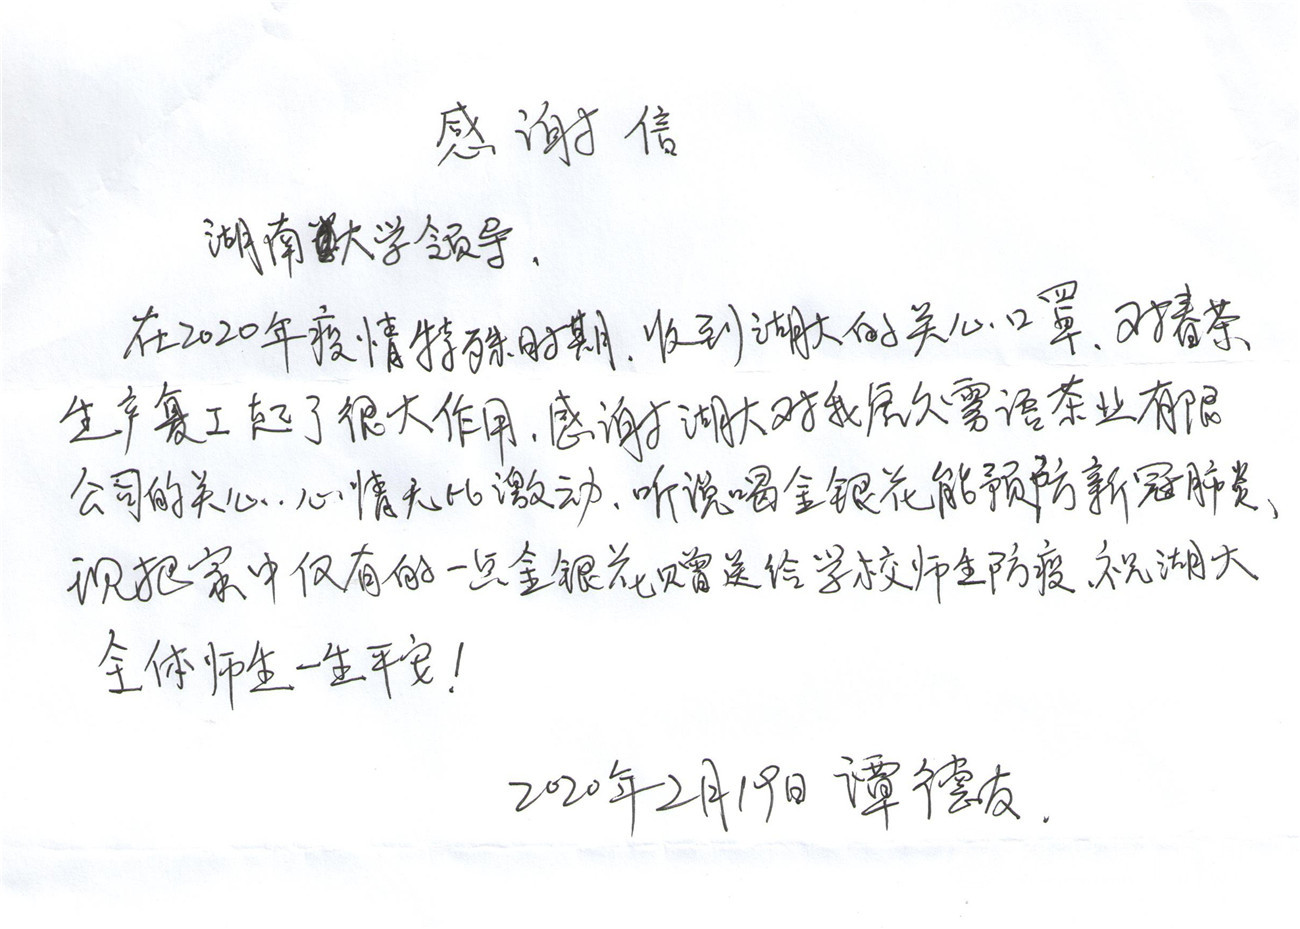 感谢信
湖南大学领导.
在2020年疫情特殊时期.收到湖大的关心.口罩.对春茶
生产复工起了很大作用.感谢湖大对我雾语茶业有限
公司的关心..心情无比激动.听说喝金银花能预防新冠肺炎、
现把家中仅有的一点金银花赠送给学校师生防疫.祝湖大
全体师生一生平安!
2020年2月19日 谭德友.